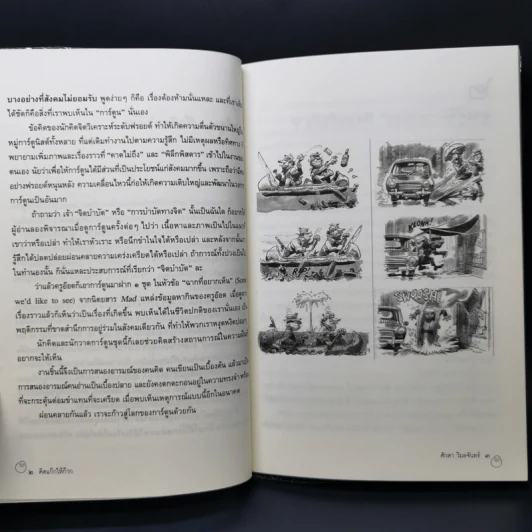 บางอย่างที่สังคมไม่ยอมรับ พูดง่ายๆ ก็คือ เรื่องต้องห้ามนั่นแหละ และที่เรา
ได้ชัดก็คือสิ่งที่เราพบเห็นใน “การ์ตูน” นั่นเอง
ข้อคิดของนักคิดจิตวิเคราะห์ระดับฟรอยด์ ทำให้เกิดความตื่นตัวขนานใหญ่
หมู่การ์ตูนิสต์ทั้งหลาย ที่แต่เดิมทำงานไปตามความรู้สึก ไม่มีเหตุผลหรือทิศทาง
พยายามเพิ่มภาพและเรื่องราวที่ “คาดไม่ถึง” และ “พิลึกพิสดาร” เข้าไปในงานของ
ตนเอง นัยว่าเพื่อให้การ์ตูนได้มีส่วนที่เป็นประโยชน์แก่สังคมมากขึ้น เพราะถือว่า
อย่างฟรอยด์หนุนหลัง ความเคลื่อนไหวนี้ก่อให้เกิดความเติบใหญ่และพัฒนาในวงการ
การ์ตูนเป็นอันมาก
ถ้าถามว่า เจ้า “จิตบำบัด” หรือ “การบำบัดทางจิต” นั้นเป็นฉันใด ก็อยาก
ผู้อ่านลองพิจารณาเมื่อดูการ์ตูนครั้งต่อๆ ไปว่า เนื้อหาและภาพเป็นไปในแนว
เขาว่าหรือเปล่า ทำให้เราหัวเราะ หรือนึกขำในใจได้หรือเปล่า และหลังจากนั้น
รู้สึกได้ปลดปล่อยผ่อนคลายความเคร่งเครียดได้หรือเปล่า ถ้าอาการมีดังว่า
ในทำนองนั้น ก็นั่นแหละประสบการณ์ที่เรียกว่า “จิตบำบัด” ละ
ว่าแล้วครูอ้อยก็เอาการ์ตูนมาฝาก ๑ ชุด ในหัวข้อ “ฉากที่อยากเห็น” (Scene
we'd like to see) จากนิตยสาร Mad แหล่งข้อมูลหากินของครูอ้อย เมื่อดู
เรื่องราวแล้วก็เห็นว่าเป็นเรื่องที่เกิดขึ้น พบเห็นได้ในชีวิตปกติของเรานั่นเอง เป็น
พฤติกรรมที่ขาดสำนึกการอยู่ร่วมในสังคมเดียวกัน ที่ทำให้พวกเราหงุดหงิด
นักคิดและนักวาดการ์ตูนชุดนี้ก็เลยช่วยคิดสร้างสถานการณ์ในความฝัน
อยากจะให้เห็น
งานชิ้นนี้จึงเป็นการสนองอารมณ์ของคนคิด คนเขียนเป็นเบื้องต้น แล้วมาเป็น
การสนองอารมณ์คนอ่านเป็นเบื้องปลาย และยังคงตกตะกอนอยู่ในความทรงจำ
ที่จะกระตุ้นต่อมขำแทนที่จะเครียด เมื่อพบเห็นเหตุการณ์แบบนี้อีกในอนาคต
ผ่อนคลายกันแล้ว เราจะก้าวสู่โลกของการ์ตูนด้วยกัน
๒ คิดแก๊กให้ก๊าก
ศักดา วิมลจันทร์ ๓